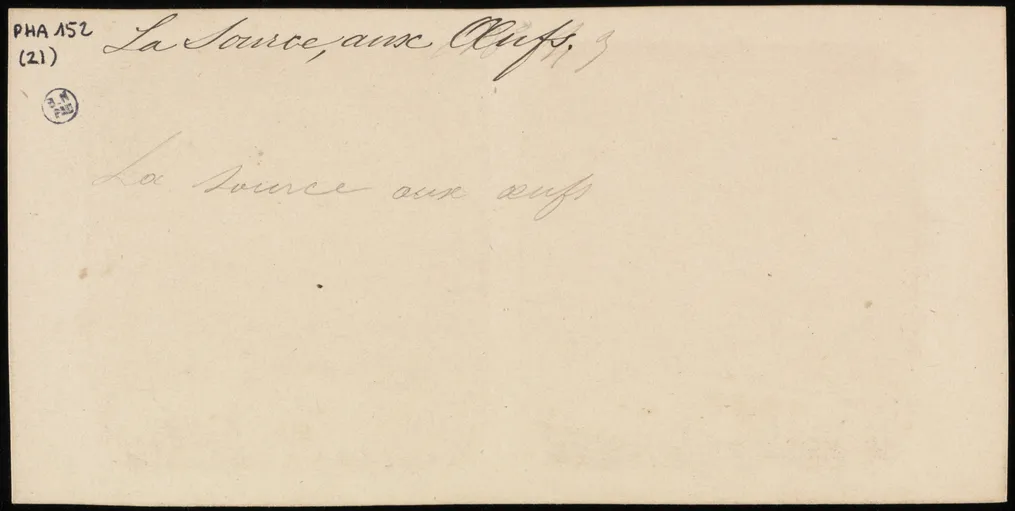 PHA 152
(21)
La Source, aux Œufs.
La source aux œufs